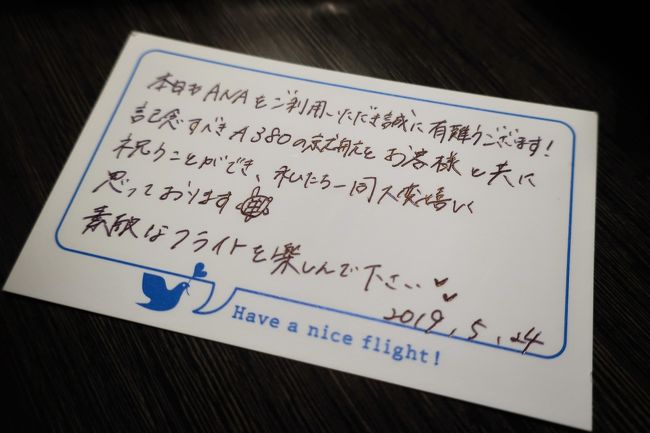 本日もANAをご利用いただき誠に有難うございます!
記念すべきA380の就航をお客様と共に
祝うことができ、私たち一同大変嬉しく
思っております
素敵なフライトを楽しんで下さい
2019.5.24
Have a nice flight!